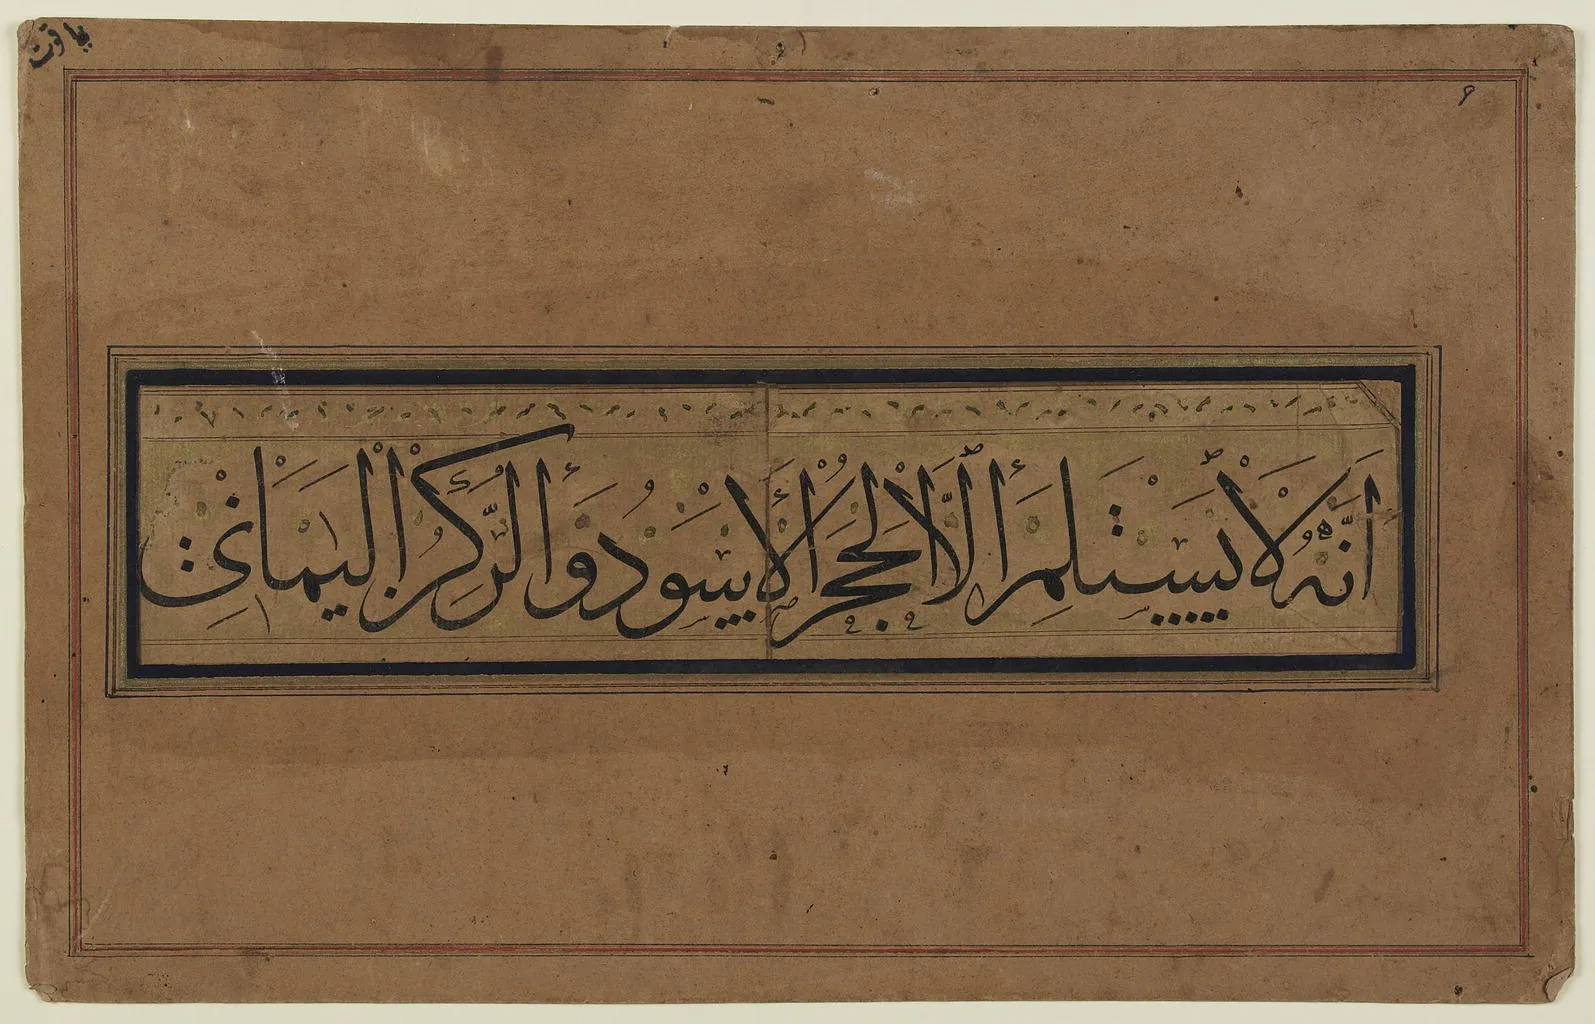 ياقوت
٩
اَنَّهُ لَا يَسْتَلِمُ اَلَّا الْحَجَرَ الْاَسْوَدَ وَالرُّكْنَ الْيَمَانِيَ